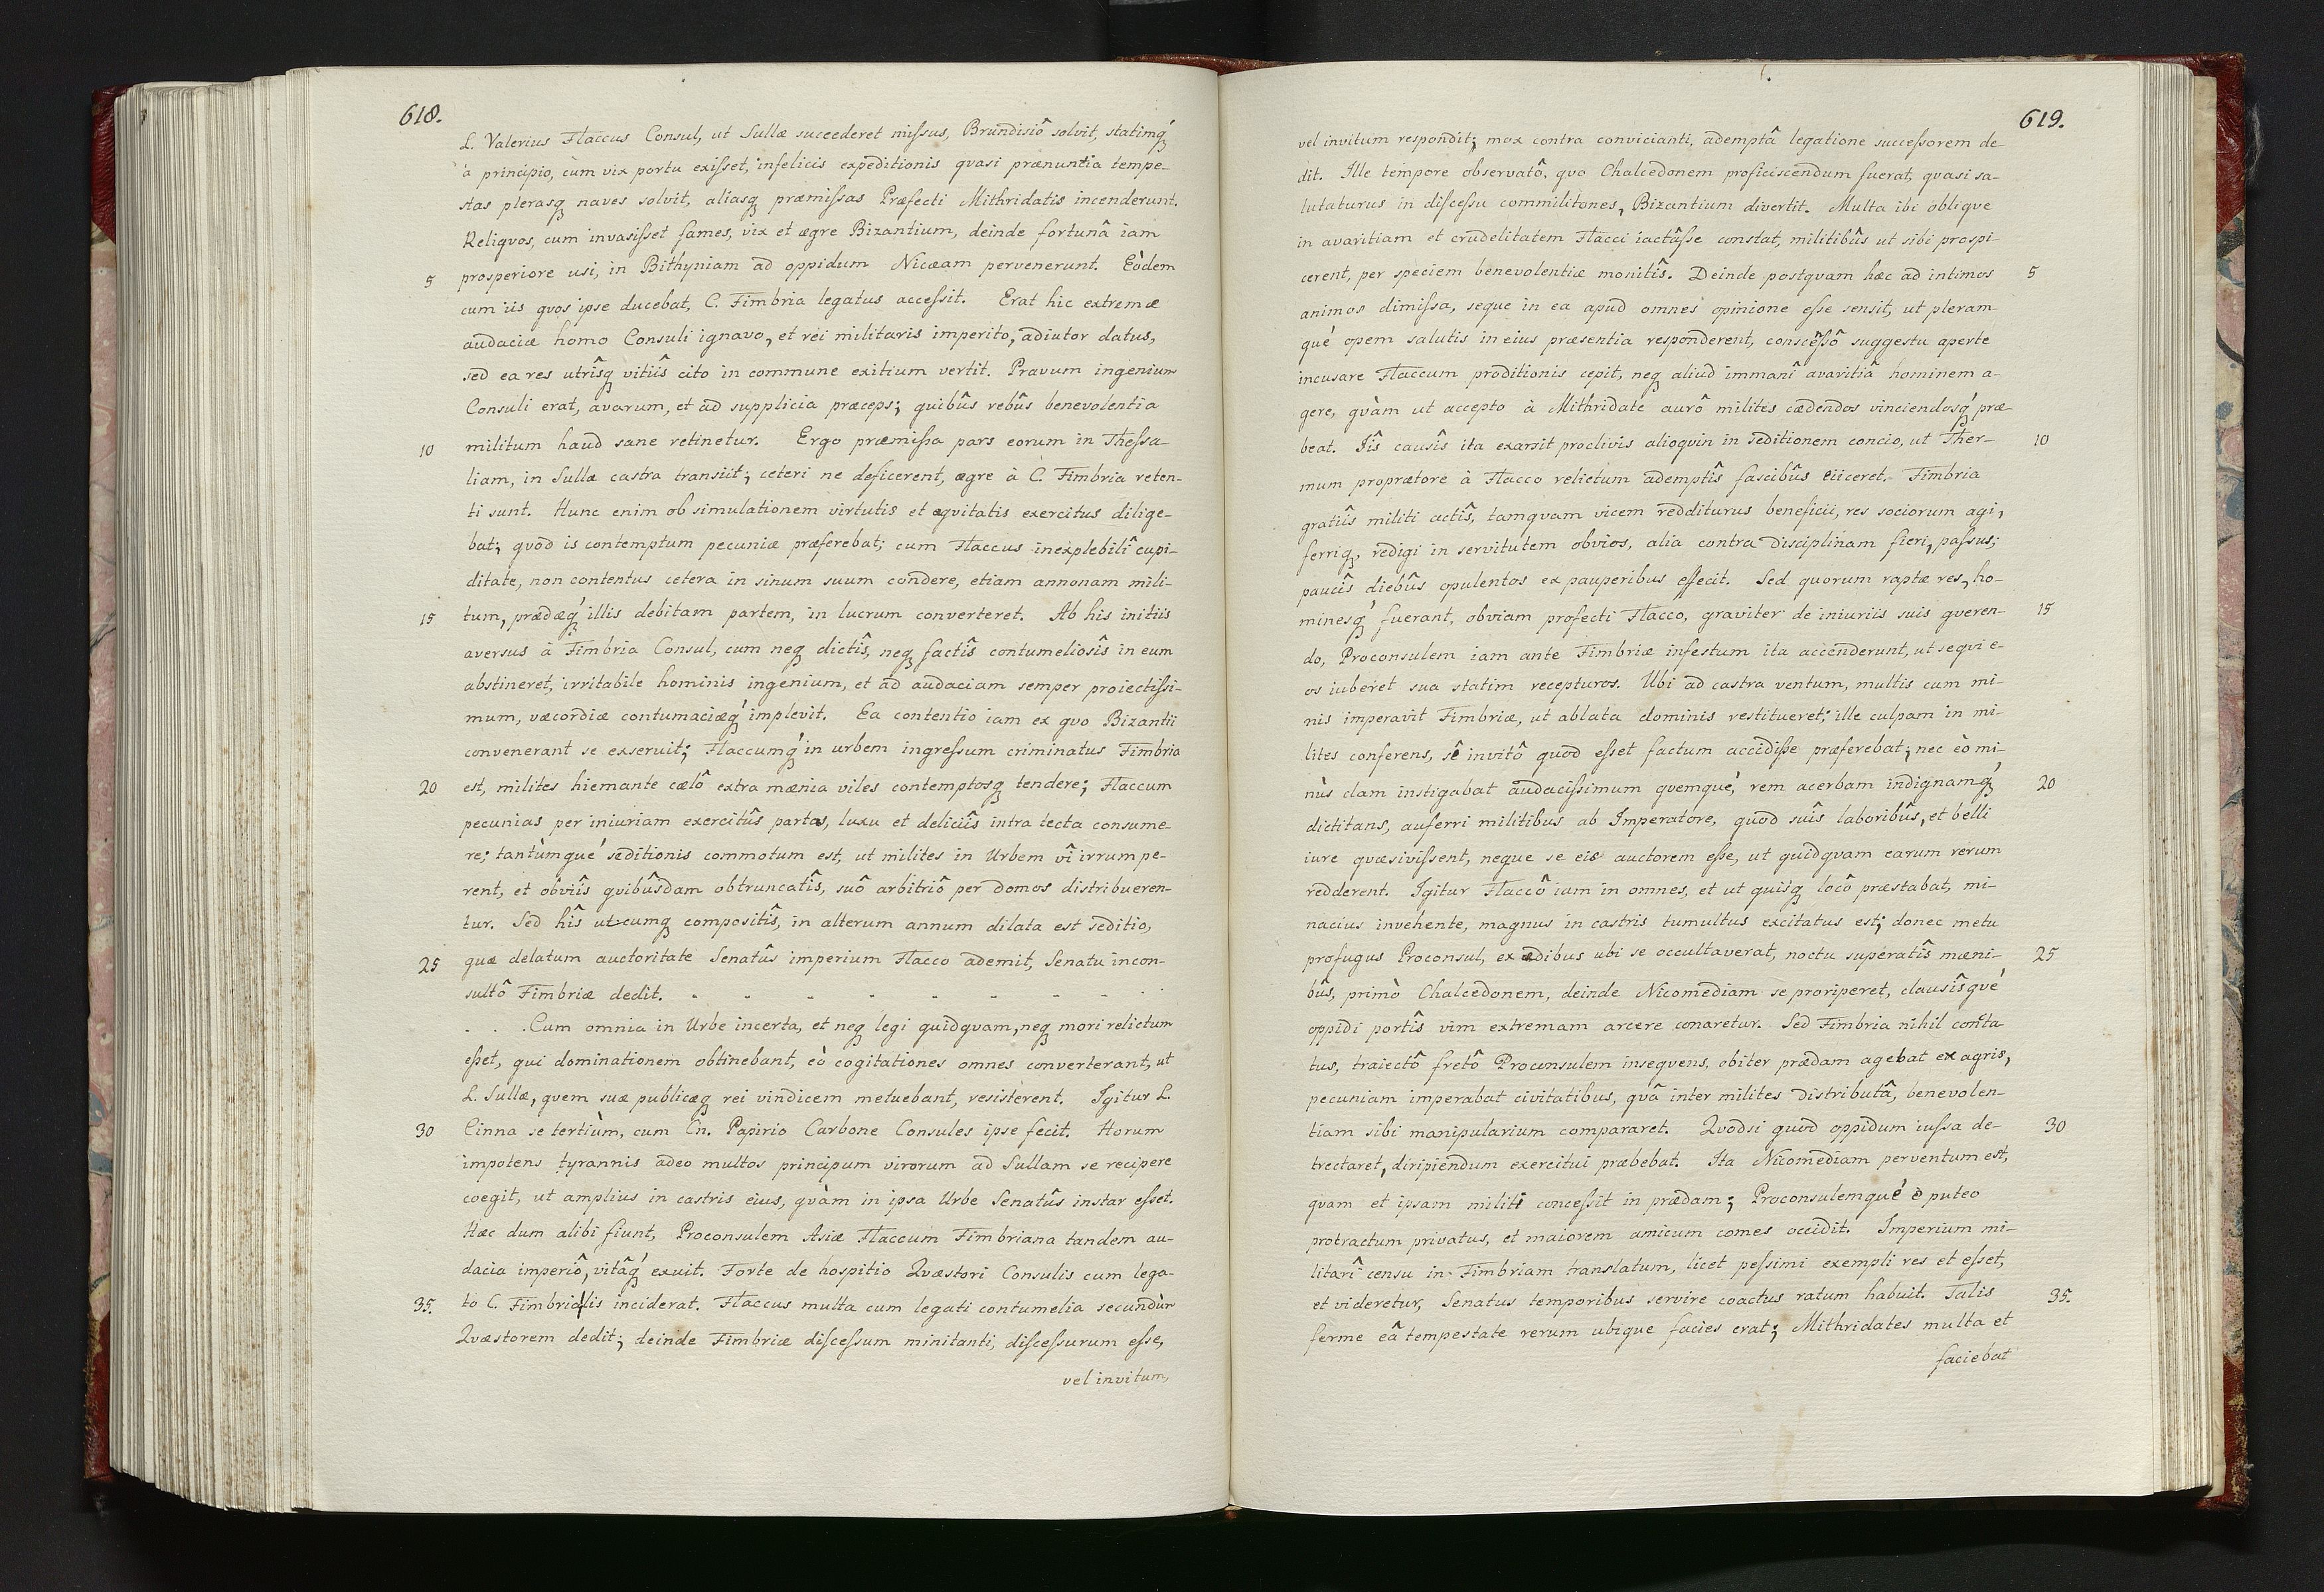 618.
L. Valerius Flaccus Consul, ut Sullæ succederet miſsus, Brundisiô solvit, statimqꝫ́
à principio, cùm vix portu exiſset, infelicis expeditionis quasi prænuntia tempe-
stas plerasqꝫ naves solvit, aliasqꝫ præmiſsas Præfecti Mithridatis incenderunt.
Reliqvos, cum invasiſset fames, vix et ægre Bizantium, deinde fortunâ iam
5 prosperiore usi, in Bithyniam ad oppidum Nicæam pervenerunt. Eòdem
cum iis qvos ipse ducebat, C. Fimbria legatus acceſsit. Erat hic extremæ
audaciæ homo Consuli ignavo, et rei militaris imperito, adiutor datus,
sed ea res utrîsqꝫ vitiîs cito in commune exitium vertit. Pravum ingenium
Consuli erat, avarum, et ad supplicia præceps; quibûs rebûs benevolentia
10 militum haud sane retinetur. Ergo præmiſsa pars eorum in Theſsa-
liam, in Sullæ castra transiit; ceteri ne deficerent, ægre à C. Fimbria reten-
ti sunt. Hunc enim ob simulationem virtutis et æqvitatis exercitus dilige-
bat; qvod is contemptum pecuniæ præferebat; cum Flaccus inexplebilî cupi-
ditate, non contentus cetera in sinum suum condere, etiam annonam mili-
15 tum, prædæqꝫ́ illis debitam partem, in lucrum converteret. Ab his initiis
aversus à Fimbria Consul, cum neqꝫ dictîs, neqꝫ factîs contumeliosîs in eum
abstineret, irritabile hominis ingenium, et ad audaciam semper proiectiſsi-
mum, væcordiæ contumaciæqꝫ́ implevit. Ea contentio iam ex qvo Bizantii
convenerant se exseruit; Flaccumqꝫ́ in urbem ingreſsum criminatus Fimbria
20 est, milites hiemante cælô extra mænia viles contemptosqꝫ tendere; Flaccum
pecunias per iniuriam exercitûs partas, luxu et deliciîs intra tecta consume-
re; tantùmqué seditionis commotum est, ut milites in Urbem vî irrumpe-
rent, et obviîs qvibûsdam obtruncatîs, suô arbitriô per domos distribueren-
tur. Sed hîs utcumqꝫ compositîs, in alterum annum dilata est seditio,
25 quæ delatum auctoritate Senatûs imperium Flacco ademit, Senatu incon-
sultô Fimbriæ dedit. - - - - - - - - - -
. . . Cum omnia in Urbe incerta, et neqꝫ legi quidqvam, neqꝫ mori relictum
eſset, qui dominationem obtinebant, eò cogitationes omnes converterant, ut
L. Sullæ, qvem suæ publicæqꝫ rei vindicem metuebant, resisterent. Igitur L.
30 Cinna se tertiùm, cum Cn. Papirio Carbone Consules ipse fecit. Horum
impotens tyrannis adeo multos principum virorum ad Sullam se recipere
coegit, ut amplius in castris eius, qvàm in ipsa Urbe Senatûs instar eſset.
Hæc dum alibi fiunt, Proconsulem Asiæ Flaccum Fimbriana tandem au-
dacia imperiô, vitâqꝫ́ exuit. Forte de hospitio Qvæstori Consulis cum lega-
35. to C. Fimbria lis inciderat. Flaccus multa cum legati contumelia secundùm
Qvæstorem dedit; deinde Fimbriæ diſceſsum minitanti, diſceſsurum eſse,
vel invitum,
619.
vel invitum respondit; mox contra convicianti, ademptâ legatione succeſsorem de-
dit. Ille tempore observatô, qvo Chalcedonem proficiscendum fuerat, qvasi sa-
lutaturus in diſceſsu commilitones, Bizantium divertit. Multa ibi obliqve
in avaritiam et crudelitatem Flacci iactâſse constat, militibûs ut sibi prospi-
cerent, per speciem benevolentiæ monitîs. Deinde postqvam hæc ad intimos 5
animos dimiſsa, seque in ea apud omnes opinione eſse sensit, ut pleram-
qué opem salutis in eius præsentia responderent, conscêſsô suggestu aperte
incusare Flaccum proditionis cepit, neqꝫ aliud immanî avaritiâ hominem a-
gere, qvàm ut accepto à Mithridate aurô milites cædendos vinciendosqꝫ́ præ-
beat. Iîs causîs ita exarsit proclivis alioqvin in seditionem concio, ut Ther- 10
mum proprætore à Flacco relictum ademptîs fascibûs eiiceret. Fimbria
gratiîs militi actîs, tamqvam vicem redditurus beneficii, res sociorum agi,
ferriqꝫ, redigi in servitutem obvios, alia contra disciplinam fieri, paſsus;
paucîs diebûs opulentos ex pauperibus effecit. Sed quorum raptæ res, ho-
minesqꝫ́ fuerant, obviam profecti Flacco, graviter de iniuriis suis qveren- 15
do, Proconsulem iam ante Fimbriæ infestum ita accenderunt, ut seqvi e-
os iuberet sua statim recepturos. Ubi ad castra ventum, multis cum mi-
nis imperavit Fimbriæ, ut ablata dominis restitueret; ille culpam in mi-
lites conferens, sê invitô quod eſset factum accidiſse præferebat; nec eò mi-
nùs clam instigabat audaciſsimum qvemqué, rem acerbam indignamqꝫ́ 20
dictitans, auferri militibus ab Imperatore, quod suîs laboribûs, et belli
iure qvæsiviſsent, neque se eis auctorem eſse, ut quidqvam earum rerum
redderent. Igitur Flaccô iam in omnes, et ut quisqꝫ locô præstabat, mi-
nacius invehente, magnus in castris tumultus excitatus est; donec metu
profugus Proconsul, ex ædibus ubi se occultaverat, noctu superatîs mæni- 25
bûs, primò Chalcedonem, deinde Nicomediam se proriperet, clausîsqvé
oppidi portîs vim extremam arcere conaretur. Sed Fimbria nihil conta-
tus, traiectô fretô Proconsulem inseqvens, obiter prædam agebat ex agris,
pecuniam imperabat civitatibus, qvâ inter milites distributâ, benevolen-
tiam sibi manipularium compararet. Qvodsi quod oppidum iuſsa de- 30
trectaret, diripiendum exercitui præbebat. Ita Nicomediam perventum est,
qvam et ipsam militi conceſsit in prædam; Proconsulemqué è puteo
protractum privatus, et maiorem amicum comes occidit. Imperium mi-
litarî censu in Fimbriam translatum, licet peſsimi exempli res et eſset,
et videretur, Senatus temporibus servire coactus ratum habuit. Talis 35.
ferme eâ tempestate rerum ubique facies erat; Mithridates multa et
faciebat